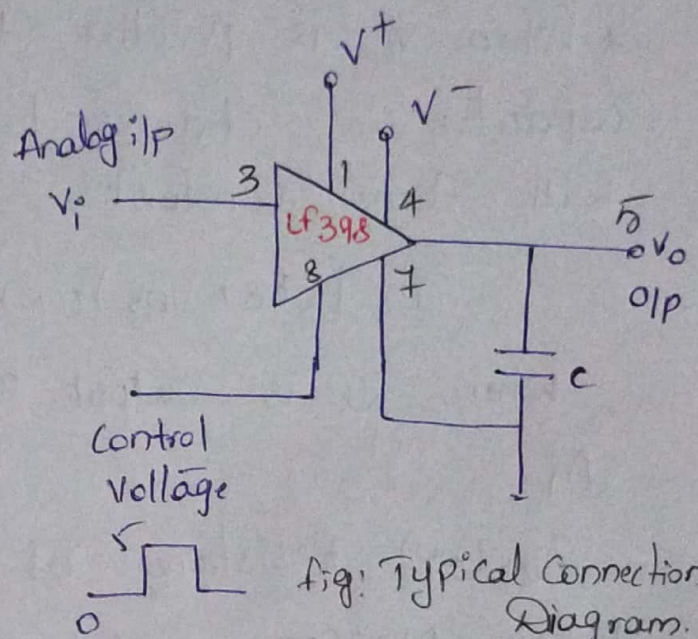 V+
V-
Analog i/p
Vi
3
1
4
LF398
8
7
5
Vo
O/p
C
Control
Voltage
5
0
fig: Typical Connection
Diagram.